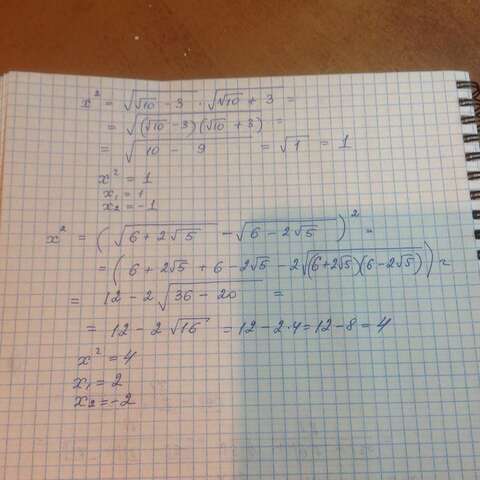 x² = √(√10 - 3) · √(√10 + 3) =
= √((√10 - 3)(√10 + 3)) =
= √(10 - 9) = √1 = 1
x² = 1
x₁ = 1
x₂ = -1
x² = (√(6 + 2√5) - √(6 - 2√5))² =
= (6 + 2√5 + 6 - 2√5 - 2√((6+2√5)(6-2√5))) =
= 12 - 2√(36 - 20) =
= 12 - 2√16 = 12 - 2·4 = 12 - 8 = 4
x² = 4
x₁ = 2
x₂ = -2